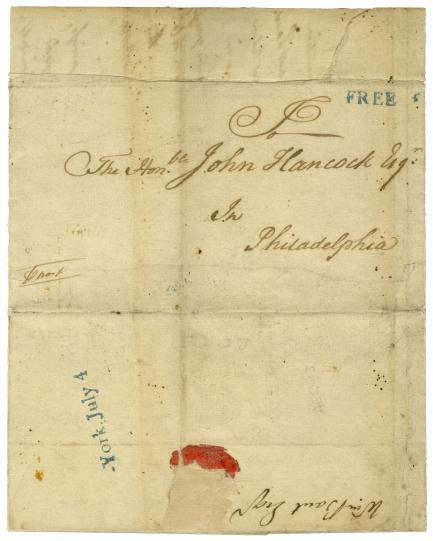 FREE
To
The Hon.ble John Hancock Esqr
In
Philadelphia
-York, July 4
Esqr